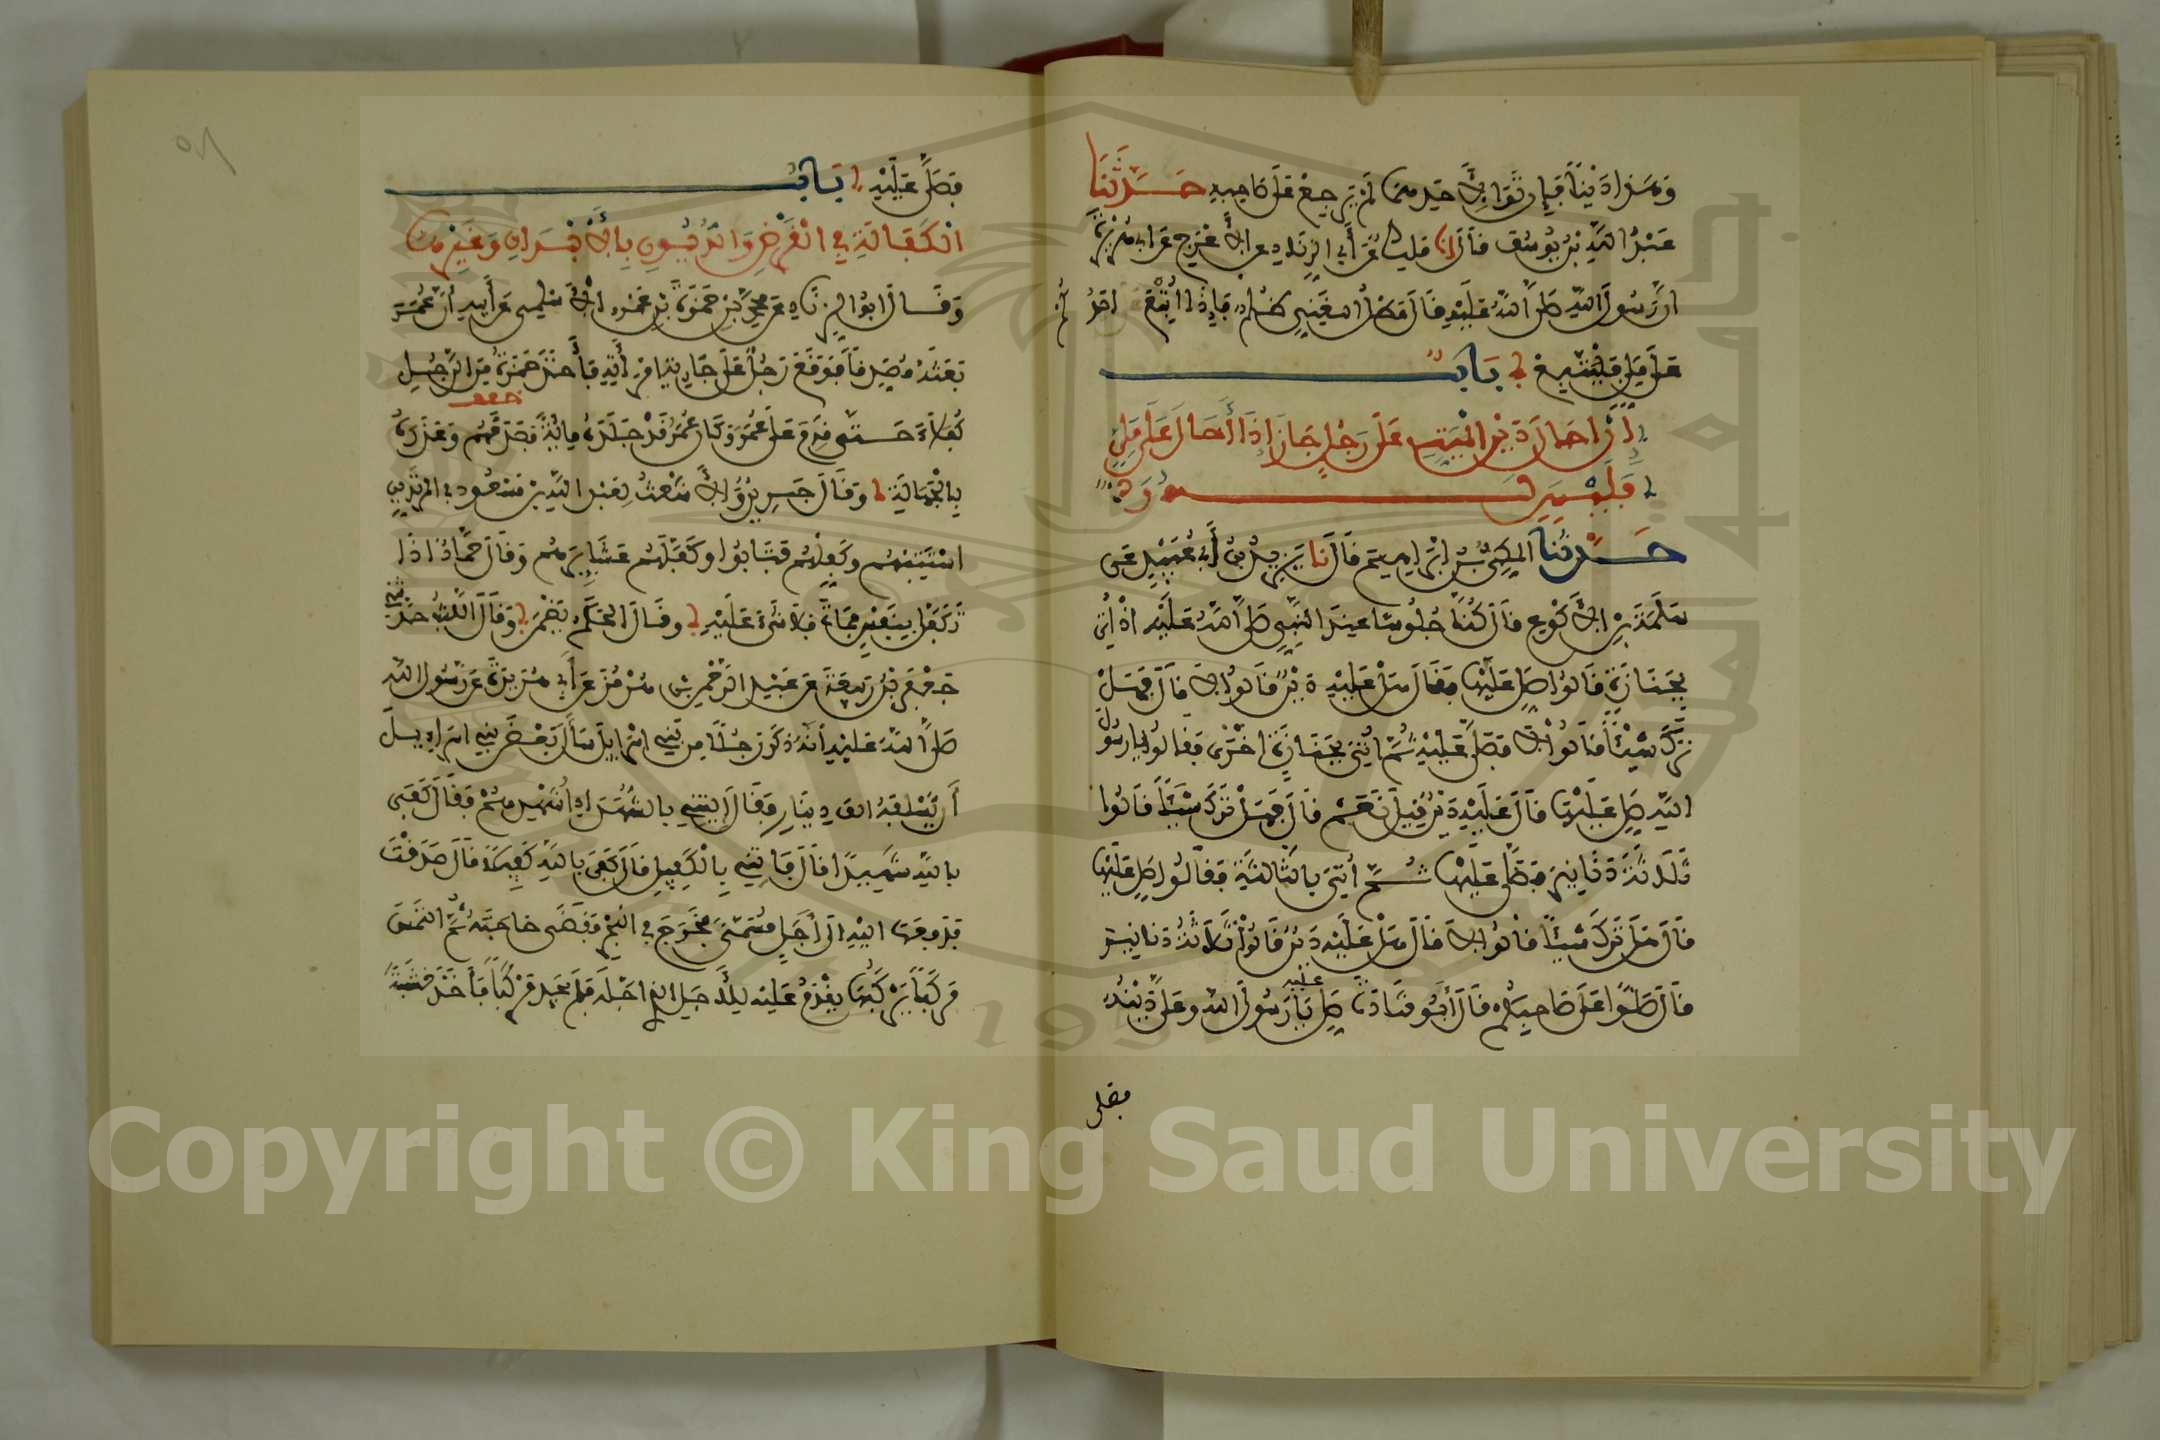 وَهَذَا دَيْنًا فَإِنْ تَوِىَ لِأَحَدِهِمَا لَمْ يَرْجِعْ عَلَى صَاحِبِهِ حَدَّثَنَا
عَبْدُ اللَّهِ بْنُ يُوسُفَ قَالَ أنا مَلِكٌ عَنْ أَبِي الزِّنَادِ عن الْأَعْرَجِ عَن أبي هُرَيْرَةَ
أن رَسُولَ اللَّهِ صَلَّى اللَّهُ عَلَيْهِ قَالَ مَطْلُ الغَنِيِّ ظُلْمٌ فَإِذَا أُتْبِعَ أحدُكُمْ
عَلَى مَلِيٍّ فَلْيَتَّبِعْ بَابٌ
إِذَا أَحَالَ دَيْنَ الْمَيِّتِ عَلَى رَجُلٍ جَازَ إِذَا أَحَالَ عَلَى مَلِيٍّ
فَلَيْسَ لَهُ رَدٌّ
حَدَّثَنَا الْمَكِّيُّ بْنُ إِبْرَاهِيمَ قَالَ نَا يَزِيدُ بْنُ أَبِي عُبَيْدٍ عَن
سَلَمَةَ بْنِ الْأَكْوَعِ قَالَ كُنَّا جُلُوسًا عِنْدَ النَّبِيِّ صَلَّى اللَّهُ عَلَيْهِ إِذْ أُتِيَ
بِجَنَازَةٍ فَقَالُوا صَلِّ عَلَيْهَا فَقَالَ هَلْ عَلَيْهِ دَيْنٌ قَالُوا لا قَالَ فَهَلْ
تَرَكَ شَيْئًا قَالُوا لا فَصَلَّى عَلَيْهِ ثُمَّ أُتِيَ بِجَنَازَةٍ أُخْرَى فَقَالُوا يا رَسُولَ
اللَّهِ صَلِّ عَلَيْهَا قَالَ عَلَيْهِ دَيْنٌ قِيلَ نَعَمْ قَالَ فَهَلْ تَرَكَ شَيْئًا قَالُوا
ثَلاثَةَ دَنَانِيرَ فَصَلَّى عَلَيْهَا ثُمَّ أُتِيَ بِالثَّالِثَةِ فَقَالُوا صَلِّ عَلَيْهَا
قَالَ هَلْ تَرَكَ شَيْئًا قَالُوا لَا قَالَ هَلْ عَلَيْهِ دَيْنٌ قَالُوا ثَلَاثَةُ دَنَانِيرَ
قَالَ صَلُّوا عَلَى صَاحِبِكُمْ قَالَ أَبُو قَتَادَةَ صَلِّ عليه يَا رَسُولَ اللَّهِ وَعَلَيَّ دَيْنُهُ
فصلى
فَصَلَّى عَلَيْهِ بَابُ
الْكَفَالَةِ فِي الْقَرْضِ وَالدُّيُونِ بِالْأَبْدَانِ وَغَيْرِهَا
وَقَالَ أَبُو الزِّنَادِ عَن مُحَمَّدِ بْنِ حَمْزَةَ بْنِ عَمْرٍو الْأَسْلَمِي عَن أَبِيهِ أَنَّ عُمَرَ
بَعَثَهُ مُصَدِّقًا فَوَقَعَ رَجُلٌ عَلَى جَارِيَةِ امْرَأَتِهِ فَأَخَذَ حَمْزَةُ مِنَ الرَّجُلِ
كُفَلَاءَ حَتَّى قَدِمَ عَلَى عُمَرَ وَكَانَ عُمَرُ قَدْ جَلَدَهُ مِائَةً فَصَدَّقَهُمْ وَعَذَرَهُ
بِالْجَهَالَةِ وَقَالَ جَرِيرٌ وَالْأَشْعَثُ لِعَبْدِ اللَّهِ بْنِ مَسْعُودٍ فِي الْمُرْتَدِّينَ
اسْتَتِبْهُمْ وَكَفِّلْهُمْ فَتَابُوا وَكَفَلَهُمْ عَشَائِرُهُمْ وَقَالَ حَمَّادٌ إِذَا
تَكَفَّلَ بِنَفْسٍ فَمَاتَ فَلَا شَيْءَ عَلَيْهِ وَقَالَ الْحَكَمُ يَضْمَنُ وَقَالَ اللَّيْثُ حَدَّثَنِي
جَعْفَرُ بْنُ رَبِيعَةَ عَن عَبْدِ الرَّحْمَنِ بْنِ هُرْمُزَ عَن أَبِي هُرَيْرَةَ عَن رَسُولِ اللَّهِ
صَلَّى اللَّهُ عَلَيْهِ أَنَّهُ ذَكَرَ رَجُلًا مِن بَنِي إِسْرَائِيلَ سَأَلَ بَعْضَ بَنِي إِسْرَائِيلَ
أَن يُسْلِفَهُ أَلْفَ دِينَارٍ فَقَالَ ائْتِنِي بِالشُّهَدَاءِ أُشْهِدُهُمْ فَقَالَ كَفَى
بِاللَّهِ شَهِيدًا قَالَ فَأْتِنِي بِالْكَفِيلِ قَالَ كَفَى بِاللَّهِ كَفِيلًا قَالَ صَدَقْتَ
فَدَفَعَهَا إِلَيْهِ إِلَى أَجَلٍ مُسَمًّى فَخَرَجَ فِي الْبَحْرِ فَقَضَى حَاجَتَهُ ثُمَّ الْتَمَسَ
مَرْكَبًا يَرْكَبُهَا يَقْدَمُ عَلَيْهِ لِلْأَجَلِ الَّذِي أَجَّلَهُ فَلَمْ يَجِدْ مَرْكَبًا فَأَخَذَ خَشَبَةً
Copyright © King Saud University